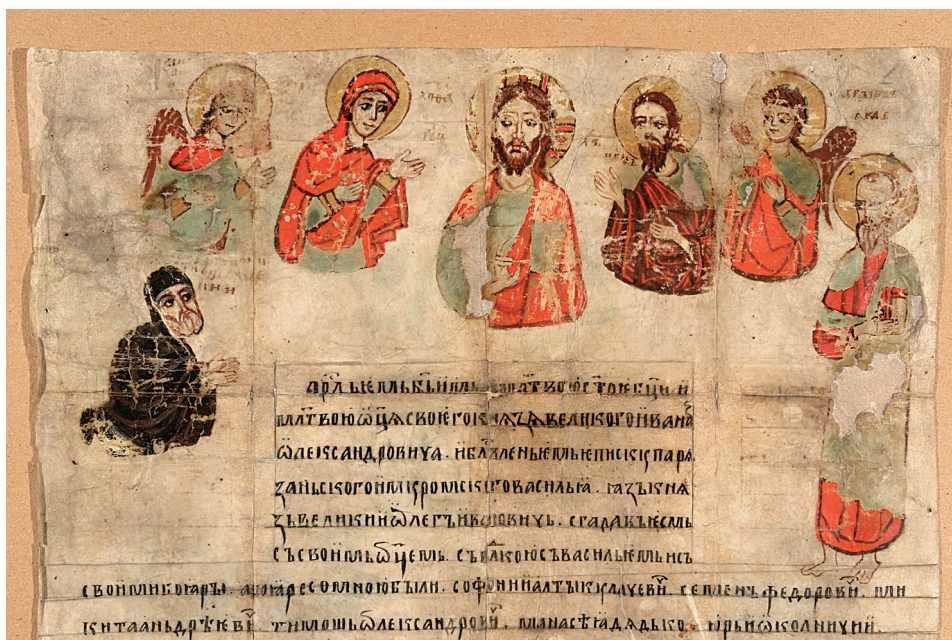 мрдьемь бьиимь млтвою стое бци и
млтвою ѿця своего князя великого ивана
ѿлександровича . и блвленьемь епискупа ря
заньского и муромского василья . язъ кня
зь великии ѿлегъ ивановичь . сгадавъ есмь
съ своимь ѿцемь . съ влдкою съ васильемь и съ
своими бояры . а бояре со мною были . софонии алтыкулачевич . семенъ федорович . ми
кита аньдрѣевич . тимошь ѿлександрович . манасѣя дядько . юрьи ѿколничии